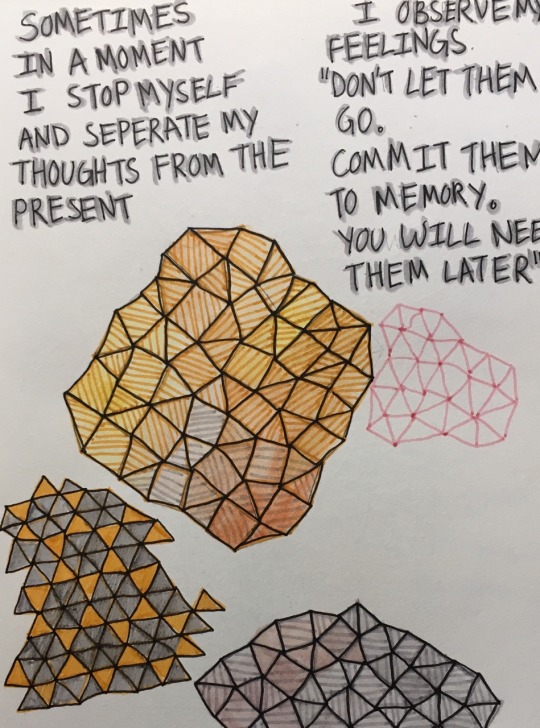 SOMETIMES
IN A MOMENT
I STOP MYSELF
AND SEPERATE MY
THOUGHTS FROM THE
PRESENT
I OBSERVE MY
FEELINGS.
"DON'T LET THEM
GO.
COMMIT THEM
TO MEMORY.
YOU WILL NEE
THEM LATER"